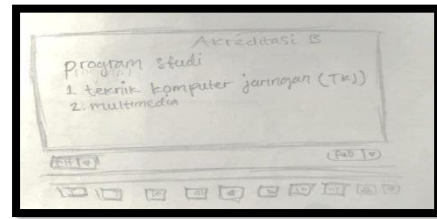 Akreditasi B
program studi
1 teknik komputer jaringan (TKJ)
2. multimedia